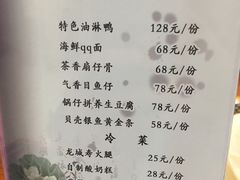 特色油淋鸭 128元/份
海鲜qq面 68元/份
茶香扇仔骨 68元/份
气香目鱼仔 78元/份
锅仔拼养生豆腐 78元/份
贝壳银鱼黄金条 58元/份
冷 菜
龙城寿火腿 25元/份
自制酸奶糕 28元/份